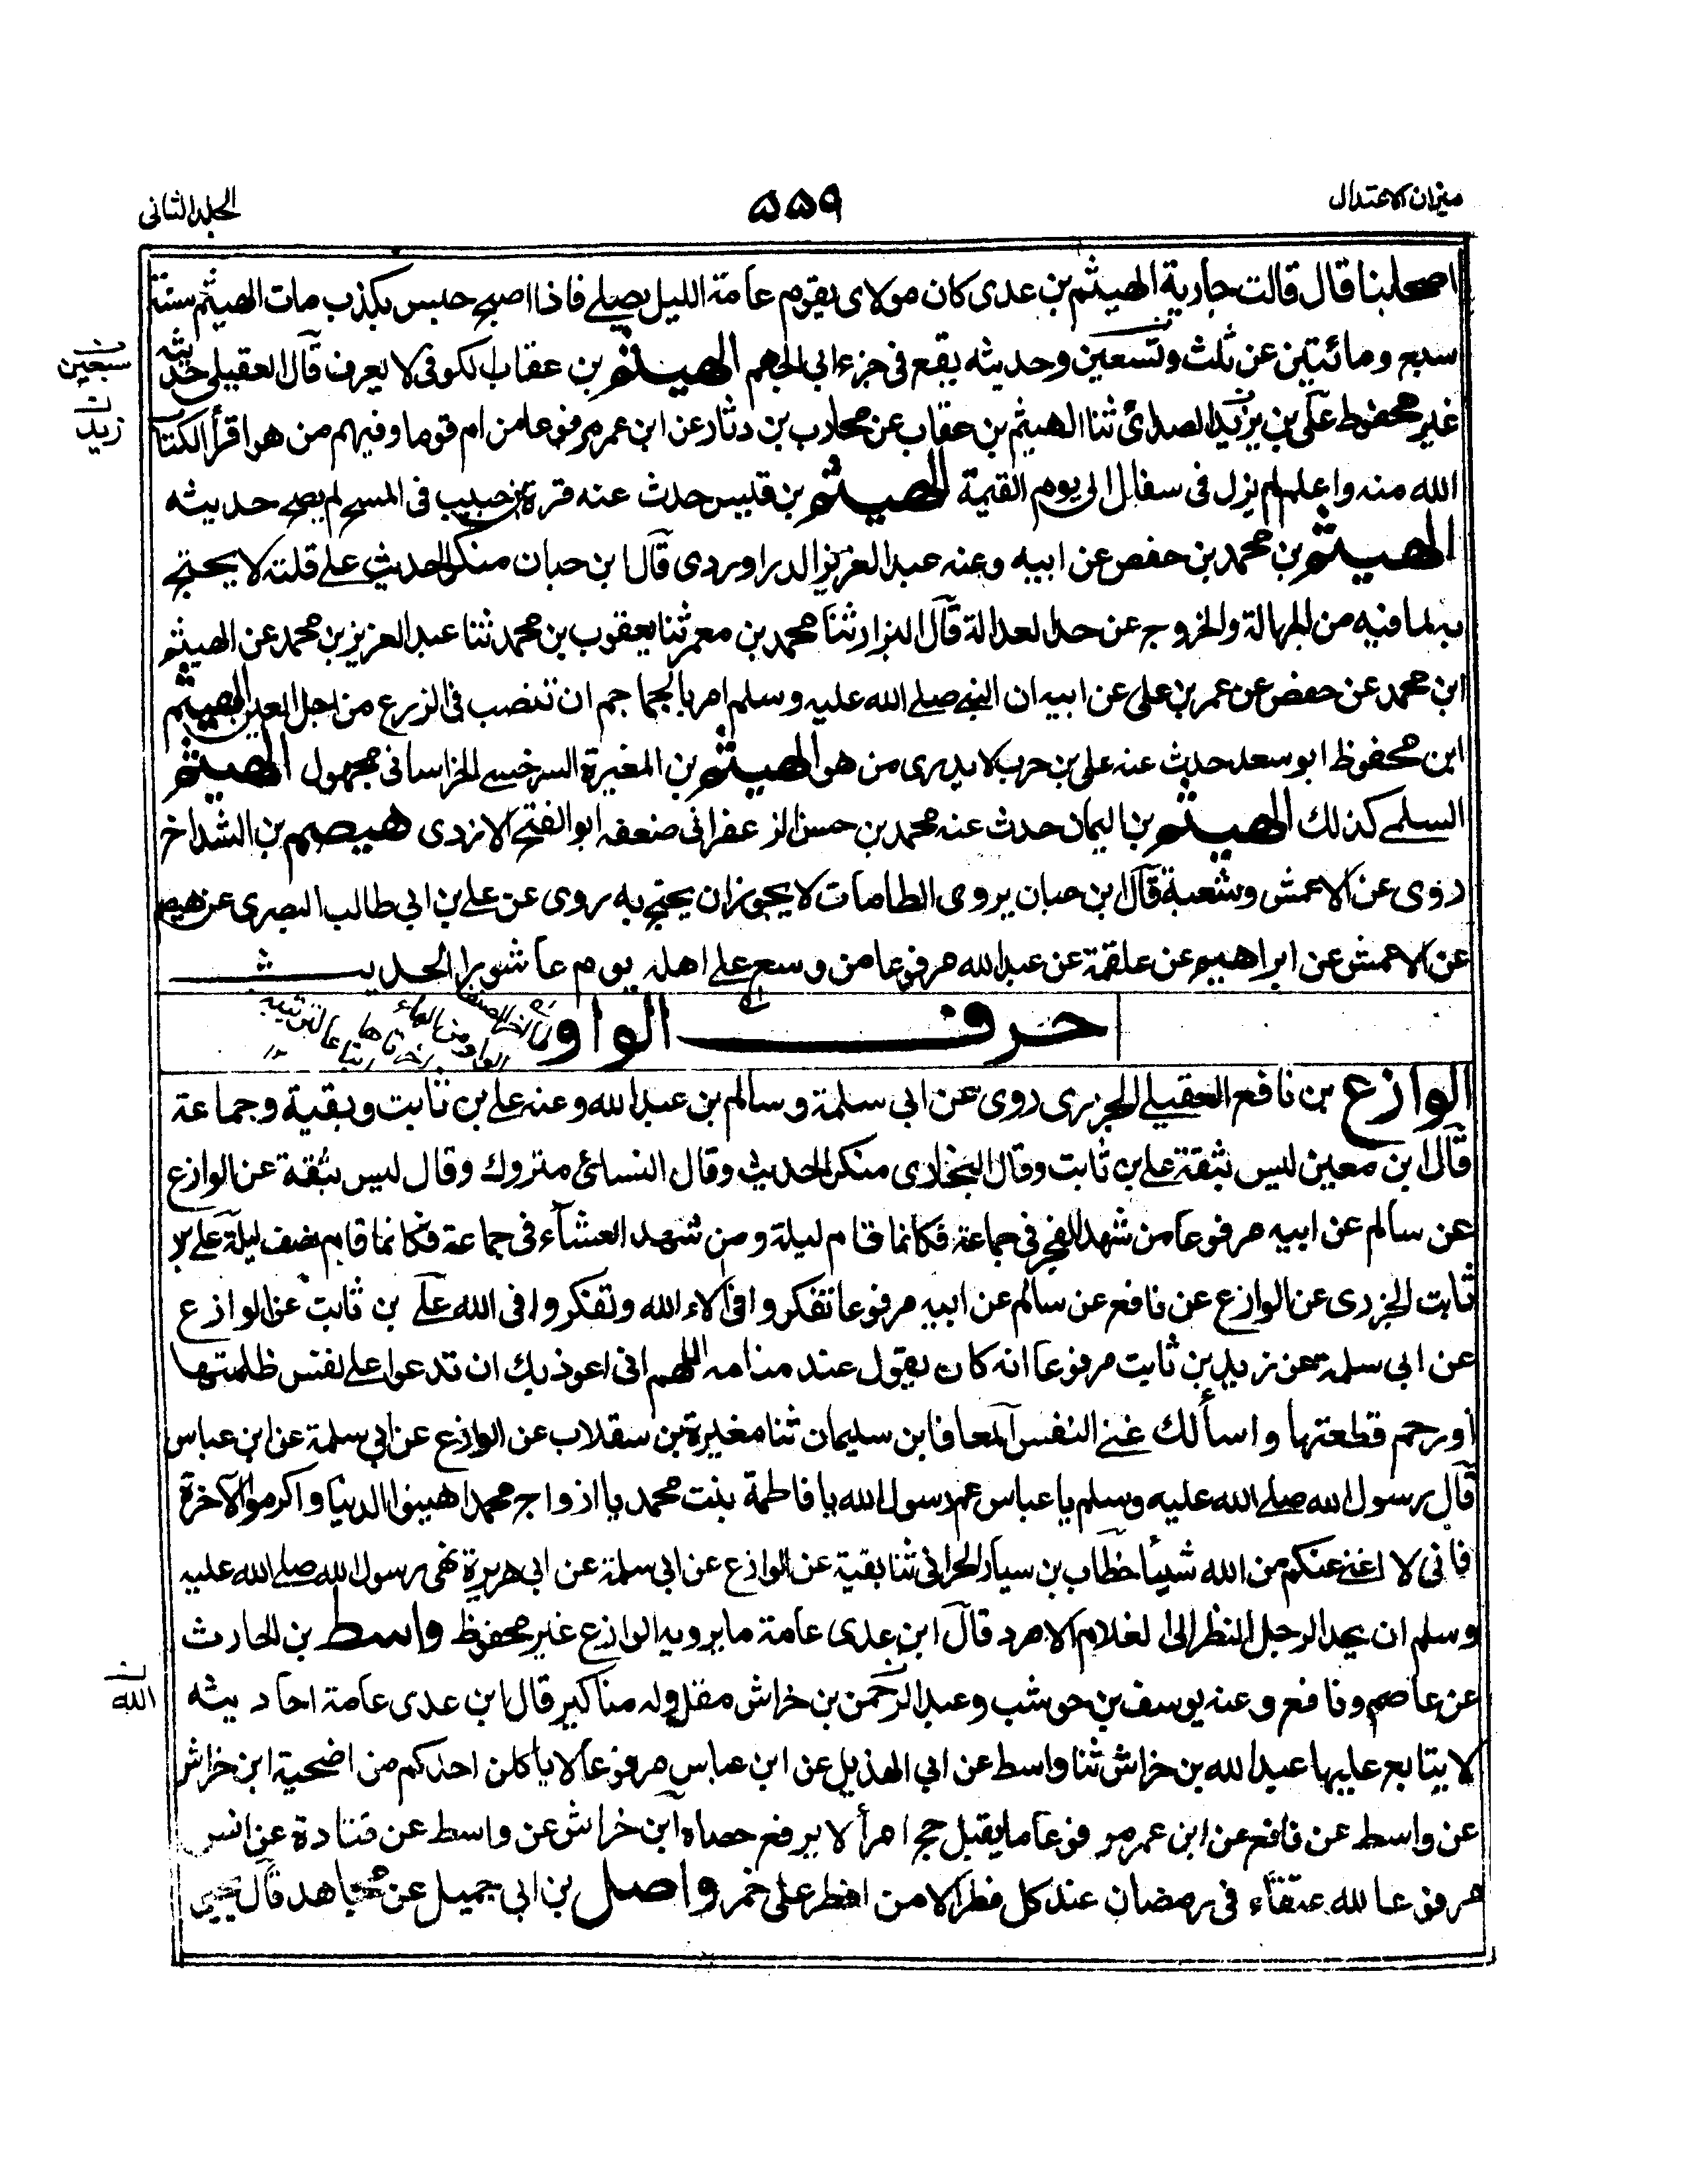 ميزان الاعتدال
۵۵۹
الجلد الثانى
اصحابنا قال قالت جارية الهيثم بن عدى كان مولاى يقوم عامة الليل يصلى فاذا اصبح جلس يكذب مات الهيثم سنة
سبع ومائتين عن ثلث وتسعين وحديثه يقع فى جزء ابى الجهم الهيثم بن عقاب الكوفى لا يعرف قال العقيلى حديثه
سبعين
غير محفوظ على بن يزيد الصدائى ثنا الهيثم بن عقاب عن محارب بن دثار عن ابن عمر مرفوعا من ام قوما وفيهم من هو اقرأ لكتاب
زيد
الله منه واعلم لم يزل فى سفال الى يوم القيمة الهيثم بن قيس حدث عنه قرة بن حبيب فى المسح لم يصح حديثه
الهيثم بن محمد بن حفص عن ابيه وعنه عبد العزيز الدراوردى قال ابن حبان منكر الحديث على قلته لا يحتج
به لما فيه من الجهالة والخروج عن حد العدالة قال البزار ثنا محمد بن معمر ثنا يعقوب بن محمد ثنا عبد العزيز بن محمد عن الهيثم
ابن محمد عن حفص عن عمر بن على عن ابيه ان النبى صلى الله عليه وسلم امر بالجماجم ان تنصب فى الزرع من اجل العين الهيثم
ابن محفوظ ابو سعد حدث عنه على بن حرب لا يدرى من هو الهيثم بن المغيرة السرخسى الخراسانى مجهول الهيثم
السلمى كذلك الهيثم بن اليمان حدث عنه محمد بن حسن الزعفرانى ضعفه ابو الفتح الازدى هيصم بن الشداخ
روى عن الاعمش وشعبة قال ابن حبان يروى الطامات لا يجوز ان يحتج به روى عن على بن ابى طالب البصرى عن هيصم
عن الاعمش عن ابراهيم عن علقمة عن عبد الله مرفوعا من وسع على اهله يوم عاشورا الحديث
حرف الواو
الوازع بن نافع العقيلى الجزرى روى عن ابى سلمة وسالم بن عبد الله وعنه على بن ثابت وبقية وجماعة
قال ابن معين ليس بثقة على بن ثابت وقال البخارى منكر الحديث وقال النسائى متروك وقال ليس بثقة عن الوازع
عن سالم عن ابيه مرفوعا من شهد الفجر فى جماعة فكانما قام ليلة ومن شهد العشاء فى جماعة فكانما قام نصف ليلة على بن
ثابت الجزرى عن الوازع عن نافع عن سالم عن ابيه مرفوعا تفكروا فى آلاء الله وتفكروا فى الله على بن ثابت عن الوازع
عن ابى سلمة عن زيد بن ثابت مرفوعا انه كان يقول عند منامه اللهم انى اعوذ بك ان تدعوا على نفس ظلمتها
او رحم قطعتها واسألك غنى النفس المعافا بن سليمان ثنا مغيرة بن سقلاب عن الوازع عن ابى سلمة عن ابن عباس
قال رسول الله صلى الله عليه وسلم يا عباس عم رسول الله يا فاطمة بنت محمد يا ازواج محمد اهينوا الدنيا واكرموا الآخرة
فانى لا اغنى عنكم من الله شيئا خطاب بن سيار الحرانى ثنا بقية عن الوازع عن ابى سلمة عن ابى هريرة نهى رسول الله صلى الله عليه
وسلم ان يحد الرجل النظر الى الغلام الامرد قال ابن عدى عامة ما يرويه الوازع غير محفوظ واسط بن الحارث
عن عاصم ونافع وعنه يوسف بن حوشب وعبد الرحمن بن خراش مقل وله مناكير قال ابن عدى عامة احاديثه
الله
لا يتابع عليها عبد الله بن خراش ثنا واسط عن ابى الهذيل عن ابن عباس مرفوعا لا ياكلن احدكم من اضحية ابن خراش
عن واسط عن نافع عن ابن عمر مرفوعا ما يقبل حج امرأ لا يرفع حصاه ابن خراش عن واسط عن قتادة عن انس
مرفوعا لله عتقاء فى رمضان عند كل فطر الا من افطر على خمر واصل بن ابى جميل عن مجاهد قال يحيى